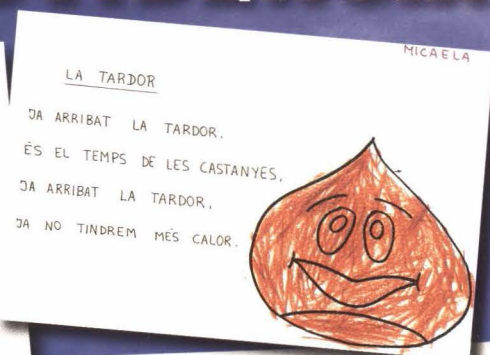 MICAELA
LA TARDOR
JA ARRIBAT LA TARDOR,
ÉS EL TEMPS DE LES CASTANYES,
JA ARRIBAT LA TARDOR,
JA NO TINDREM MÉS CALOR.